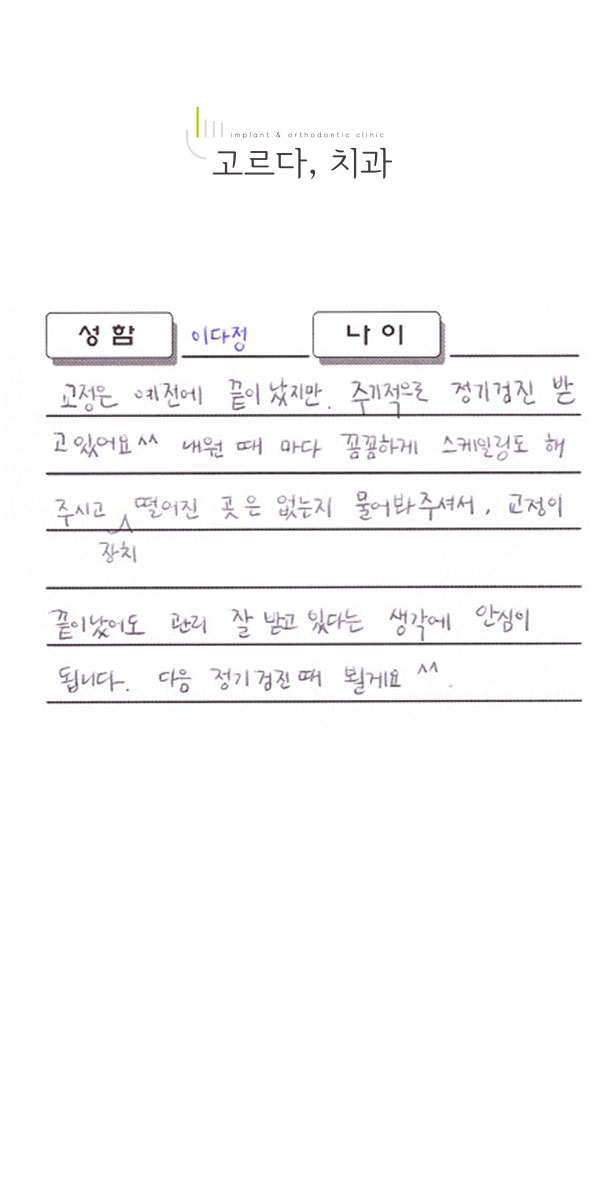 implant & orthodontic clinic
고르다, 치과
성 함 이다정 나 이
교정은 예전에 끝이 났지만. 주기적으로 정기검진 받
고 있어요^^ 내원 때 마다 꼼꼼하게 스케일링도 해
주시고 떨어진 곳은 없는지 물어봐주셔서, 교정이
장치
끝이났어도 관리 잘 받고 있다는 생각에 안심이
됩니다. 다음 정기검진때 뵐게요 ^^.